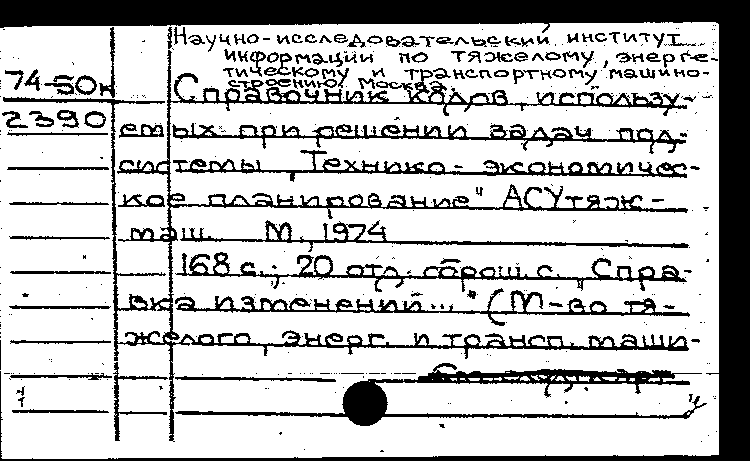 Научно-исследовательский институт
информации по тяжелому, энерге-
тическому и транспортному машино-
строению. Москва.
74-50к
Справочник кодов, использу-
2390
емых при решении задач под-
системы „Технико-экономичес-
кое планирование" АСУтяж-
маш. М., 1974
168 с.; 20 отд. сброш. с. „Спра-
вка изменений..." (М-во тя-
желого, энерг. и трансп. маши-
См. след. карт